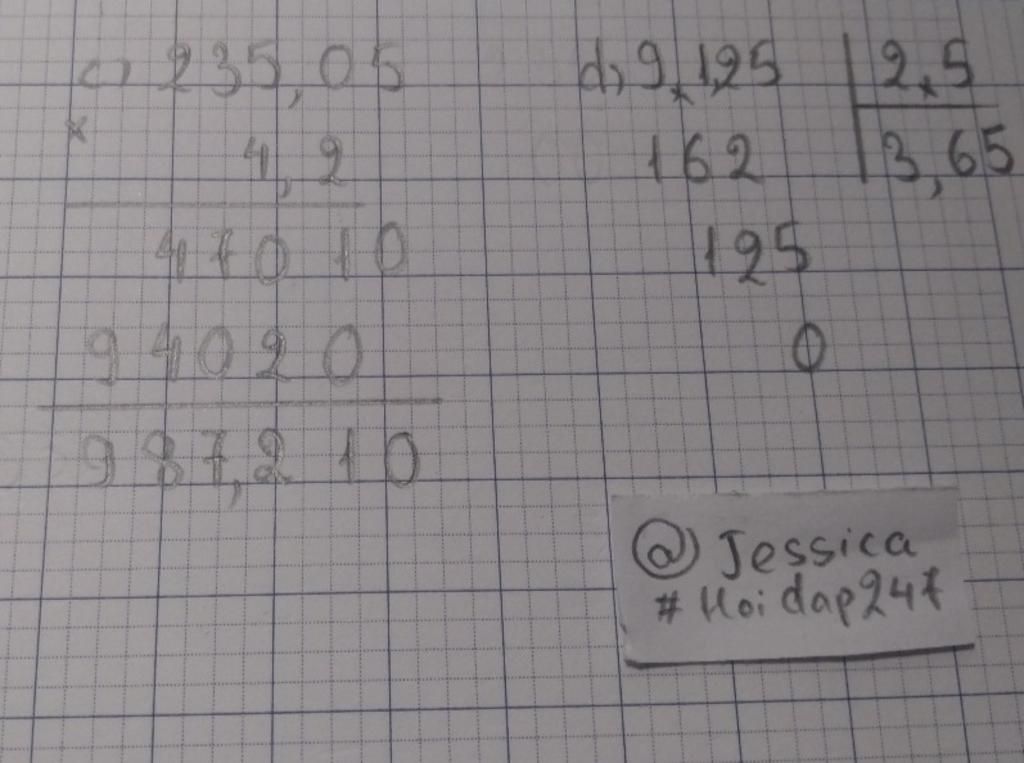 c) 235,05
x
4,2
47010
94020
987,210
d, 9,125 2,5
162 3,65
125
0
@ Jessica
# Hoidap247